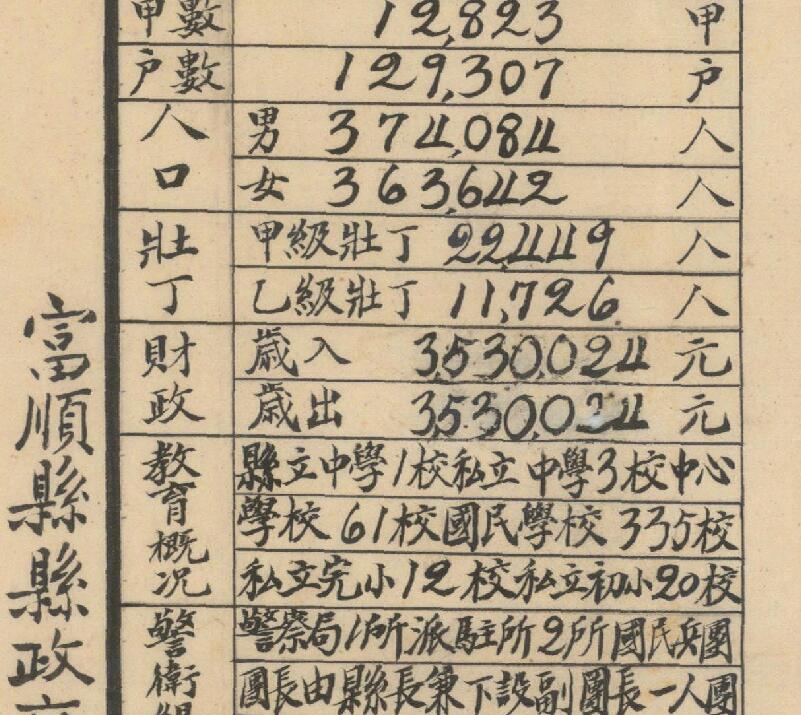 甲數 12,823 甲
户數 129,307 户
人口 男 374,084 人
女 363,642 人
壯丁 甲級壯丁 22,449 人
乙級壯丁 11,726 人
財政 歲入 3,530,024 元
歲出 3,530,024 元
教育概况 縣立中學1校私立中學3校中心
學校61校國民學校335校
私立完小12校私立初小20校
警衛組 警察局1所派駐所2所國民兵團
團長由縣長兼下設副團長一人團
富順縣縣政